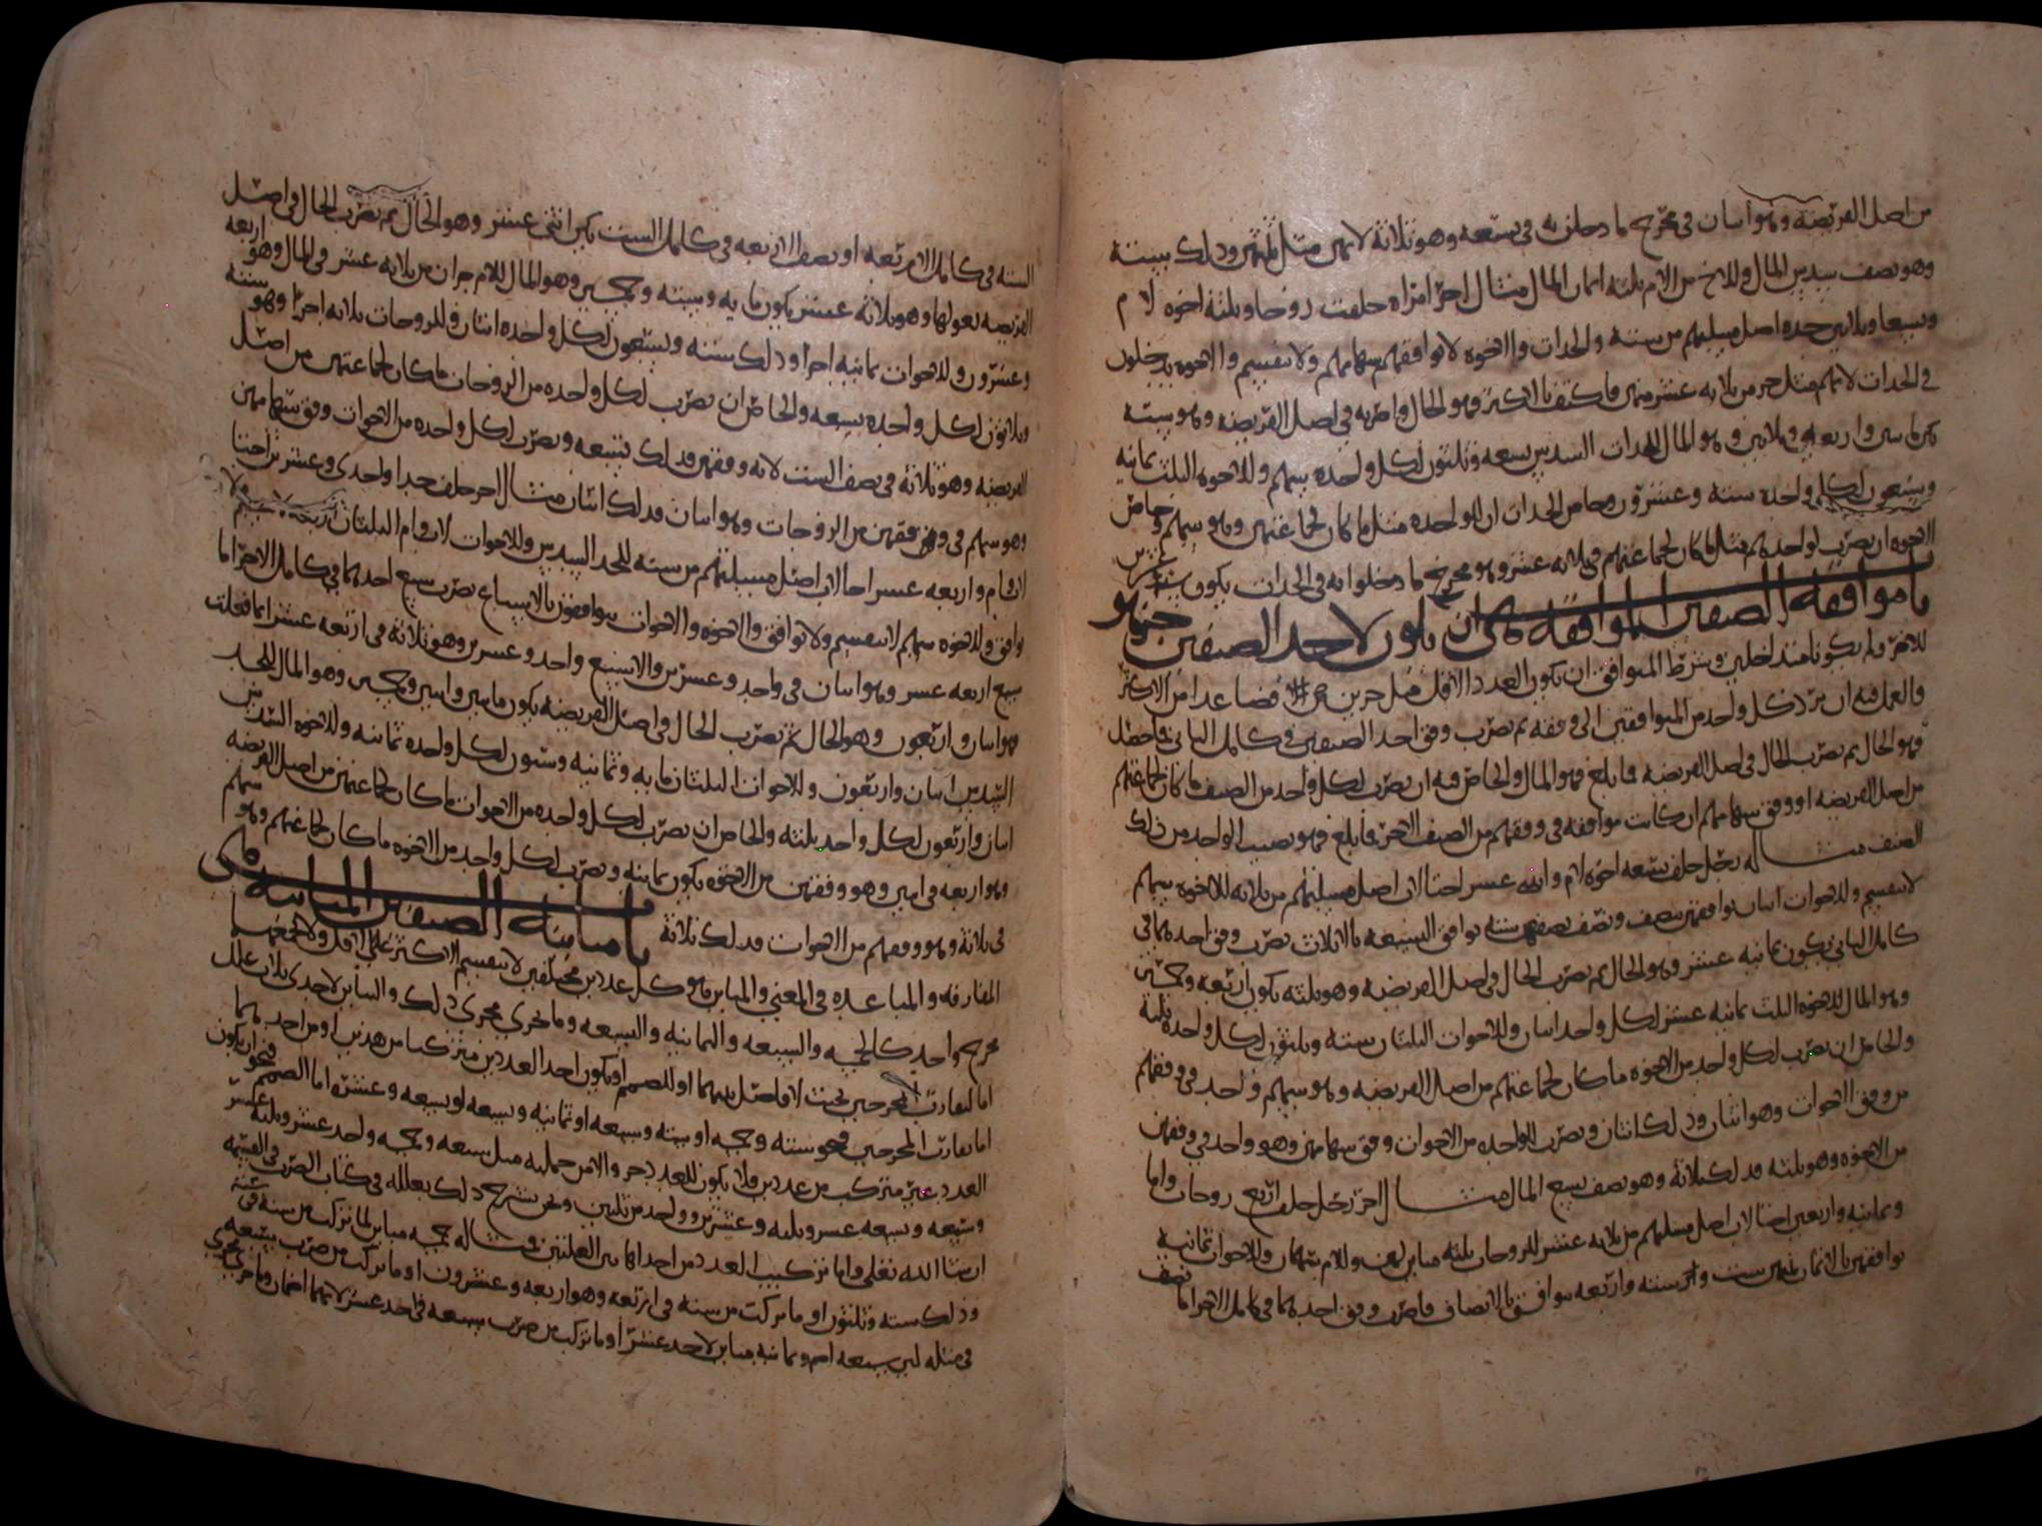 من اصل الفريضه وهو اسان في مخرج ما دخلن به في تسعه وهو ثلاثة لانهن مثل ثلثهن وذلك ستة
وهو نصف سدس المال وللاخ من الام ثلثه اثمان المال مثال اخر امراه خلفت زوجا وثلثة اخوه لام
وسبعا وثلاثين جده اصل مسيلتهم من ستة والجدات والاخوه لا توافقهم سهامهم ولا تنقسم والاخوه يدخلون
في الجدات لانهم مثل جز من ثلاثه عشر منهن فاكتف بالاكثر فهو الحال واضربه في اصل الفريضه وهو ستة
يكن ماتين واربعه وثلاثين وهو المال للجدات السدس تسعه وثلثون لكل واحده سهم وللاخوه الثلث ثمانيه
وسبعون لكل واحد ستة وعشرون وخاص الجدات ان للواحده مثل ما كان لجماعتهن وهو سهم وخاص
الاخوه ان تضرب لواحدهم مثل ما كان لجماعتهم في ثلاثه عشر وهو مخرج ما دخلوا به في الجدات يكون ستة وعشرين
باب موافقة الصنفين الموافقه هي ان يكون لاحد الصنفين جزو هو
للاخر ولم يكونا متداخلين وشرط المتوافق ان يكون العدد الاقل مثل جزين فصاعدا من الاكثر
فالعمل فيه ان ترد كل واحد من المتوافقين الى وفقه ثم تضرب وفق احد الصنفين في كامل الثاني فما حصل
فهو الحال ثم تضرب الحال في اصل الفريضه فما بلغ فهو المال والخاص فيه ان تضرب لكل واحد من الصنف ما كان لجماعتهم
من اصل الفريضه او وفق سهامهم ان كانت موافقه في وفقهم من الصنف الاخر فما بلغ فهو نصيب الواحد من ذلك
الصنف مثاله رجل خلف تسعه اخوه لام واثني عشر اختا لاب اصل مسيلتهم من ثلاثه للاخوه سهم
لا ينقسم وللاخوات اثنان توافقهن بنصف ونصف نصفهن ستة توافق التسعه بالاثلاث تضرب وفق احدهما في
كامل الثاني يكون ثمانيه عشر وهو الحال ثم تضرب الحال في اصل الفريضه وهو ثلثه يكون اربعه وخمسين
وهو المال للاخوه الثلث ثمانيه عشر لكل واحد اثنان وللاخوات الثلثان ستة وثلثون لكل واحده ثلثة
والخاص ان تضرب لكل واحد من الاخوه ما كان لجماعتهم من اصل الفريضه وهو سهم واحد في وفقهم
من وفق الاخوات وهو اثنان وذلك اثنان وتضرب للواحده من الاخوات وفق سهامهن وهو واحد في وفقهن
من الاخوه وهو ثلثه فذلك ثلاثة وهو نصف تسع المال مثال اخر رجل خلف اربع زوجات واما
وثمانيه واربعين اختا لاب اصل مسيلتهم من ثلاثه عشر للزوجات ثلثه مباين لهن وللام سهمان وللاخوات ثمانية
توافقهن بالاثمان ثمنهن ست والستة والاربعه تتوافق بالانصاف فاضرب وفق احدهما في كامل الاخر اما نصف
الستة في كامل الاربعه او نصف الاربعه في كامل الست يكن اثنى عشر وهو الحال ثم تضرب الحال في اصل
الفريضه بعولها وهو ثلاثة عشر يكون مايه وستة وخمسين وهو المال للام جزان من ثلاثه عشر في المال وهو اربعه
وعشرون وللاخوات ثمانيه اجزا وذلك ستة وتسعون لكل واحده اثنان وللزوجات ثلاثه اجزا وهو ستة
وثلاثون لكل واحده تسعه والخاص ان تضرب لكل واحده من الزوجات ما كان لجماعتهن من اصل
الفريضه وهو ثلاثة في نصف الست لانه وفقهن فذلك تسعه وتضرب لكل واحده من الاخوات وفق سهامهن
وهو سهم في وفقهن من الزوجات وهو اثنان فذلك اثنان مثال اخر خلف جدا واحدى وعشرين اختا
لاب وام واربعه عشر اخا لاب اصل مسيلتهم من سته للجد السدس وللاخوات لاب وام الثلثان اربعه
توافق وللاخوه سهم لا ينقسم ولا توافق والاخوه والاخوات يتوافقون بالاسباع تضرب سبع احدهما في كامل الاخر اما
سبع اربعه عشر وهو اثنان في واحد وعشرين والا سبع واحد وعشرين وهو ثلاثة في اربعه عشر ايما فعلت
فهو اثنان واربعون وهو الحال ثم تضرب الحال في اصل الفريضه يكون ماتين واثنين وخمسين وهو المال للجد
السدس اثنان واربعون وللاخوات الثلثان مايه وثمانيه وستون لكل واحده ثمانيه وللاخوه السدس
اثنان واربعون لكل واحد ثلثه والخاص ان تضرب لكل واحده من الاخوات ما كان لجماعتهن من اصل الفريضه
وهو اربعه في اثنين وهو وفقهن من الاخوه يكون ثمانيه وتضرب لكل واحد من الاخوه ما كان لجماعتهم وهو سهم
في ثلاثة وهو وفقهم من الاخوات فذلك ثلاثة باب مباينة الصنفين المباينه هي
المفارقه والمباعده في المعنى والمباين هو كل عددين مختلفين لا ينقسم الاكثر على الاقل ولا يجمعهما
مخرج واحد كالخمسه والسبعه والثمانيه والتسعه وما جرى مجرى ذلك والتباين لاحدى ثلاث علل
اما لتقارب المخرجين بحيث لا فاصل بينهما او للصمم او يكون احد العددين متركبا من هذين او من احدهما
اما تقارب المخرجين فنحو ستة وخمسه او سته وسبعه او ثمانيه وسبعه او تسعه وعشره اما الصمم فنحو ان يكون
العدد غير متركب من عددين ولا يكون للعدد جز والامن جملته مثل سبعه وخمسه واحد عشر وثلثه عشر
وسبعه وتسعه عشر وثلثه وعشرين وواحد من ثلثين ونحن نشرح ذلك بعلله في كتاب الضرب في القسمه
ان شا الله تعالى واما تركيب العدد من احدى هاتين العلتين فمثاله خمسه مباين لما تركب من سته في سته
وذلك سته وثلثون او ما تركب من ستة في اربعه وهو اربعه وعشرون او ما تركب من ضرب سبعه
في مثله ثمانيه مباين لاحد عشر او ما تركب من ضرب سبعه في احد عشر لانهما اصمان وما جرى مجرى